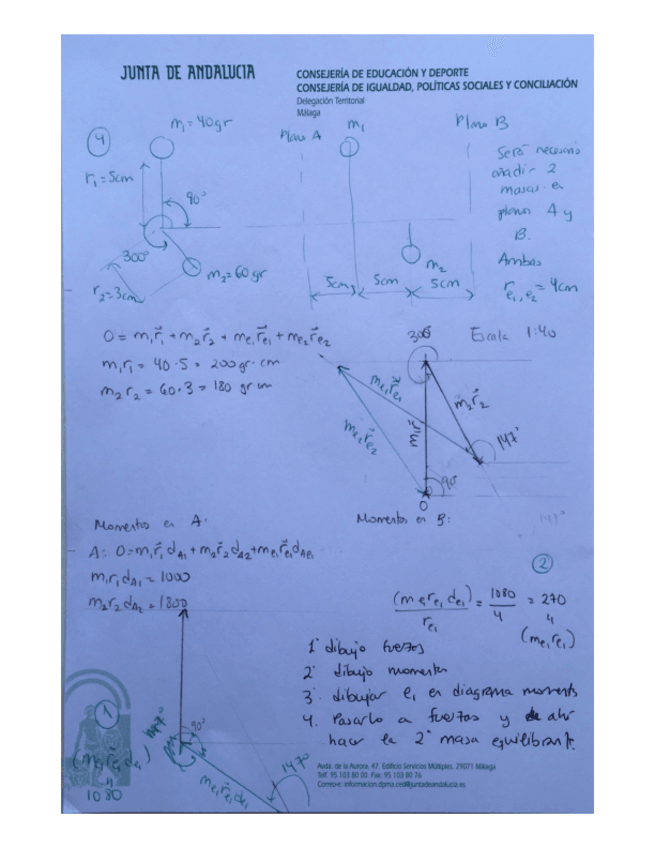 JUNTA DE ANDALUCIA
CONSEJERÍA DE EDUCACIÓN Y DEPORTE
CONSEJERÍA DE IGUALDAD, POLÍTICAS SOCIALES Y CONCILIACIÓN
Delegación Territorial
Málaga
4
m₁ = 40gr
r₁ = 5cm
90°
300°
r₂ = 3cm
m₂ = 60 gr
Plano A
m₁
Plano B
m₂
5cm
5cm
5cm
Será necesario
añadir 2
masas en
planos A y
B.
Ambas
r e₁, e₂ = 4cm
0 = m₁r₁ + m₂r₂ + me₁re₁ + me₂re₂
m₁r₁ = 40 · 5 = 200 gr · cm
m₂r₂ = 60 · 3 = 180 gr cm
300°
Escala 1:40
me₁re₁
m₂r₂
me₂re₂
m₁r₁
147°
90°
0
Momentos en A:
Momentos en B:
A: 0 = m₁r₁dA₁ + m₂r₂dA₂ + me₁re₁dAe₁
m₁r₁dA₁ = 1000
m₂r₂dA₂ = 1800
2
(me₁re₁de₁)/re₁ = 1080/4 = 270
"
(me₁re₁)
1° dibujo fuerzas
2° dibujo momentos
3. dibujar e₁ en diagrama moments
4. Pasarlo a fuerzas y de ahí
hacer la 2ª masa equilibrante.
1
90°
147°
(me₁re₁de₁)
"
1080
me₁re₁de₁
147°
Avda. de la Aurora, 47. Edificio Servicios Múltiples. 29071 Málaga
Telf. 95 103 80 00. Fax: 95 103 80 76
Correo-e: informacion.dpma.ced@juntadeandalucia.es